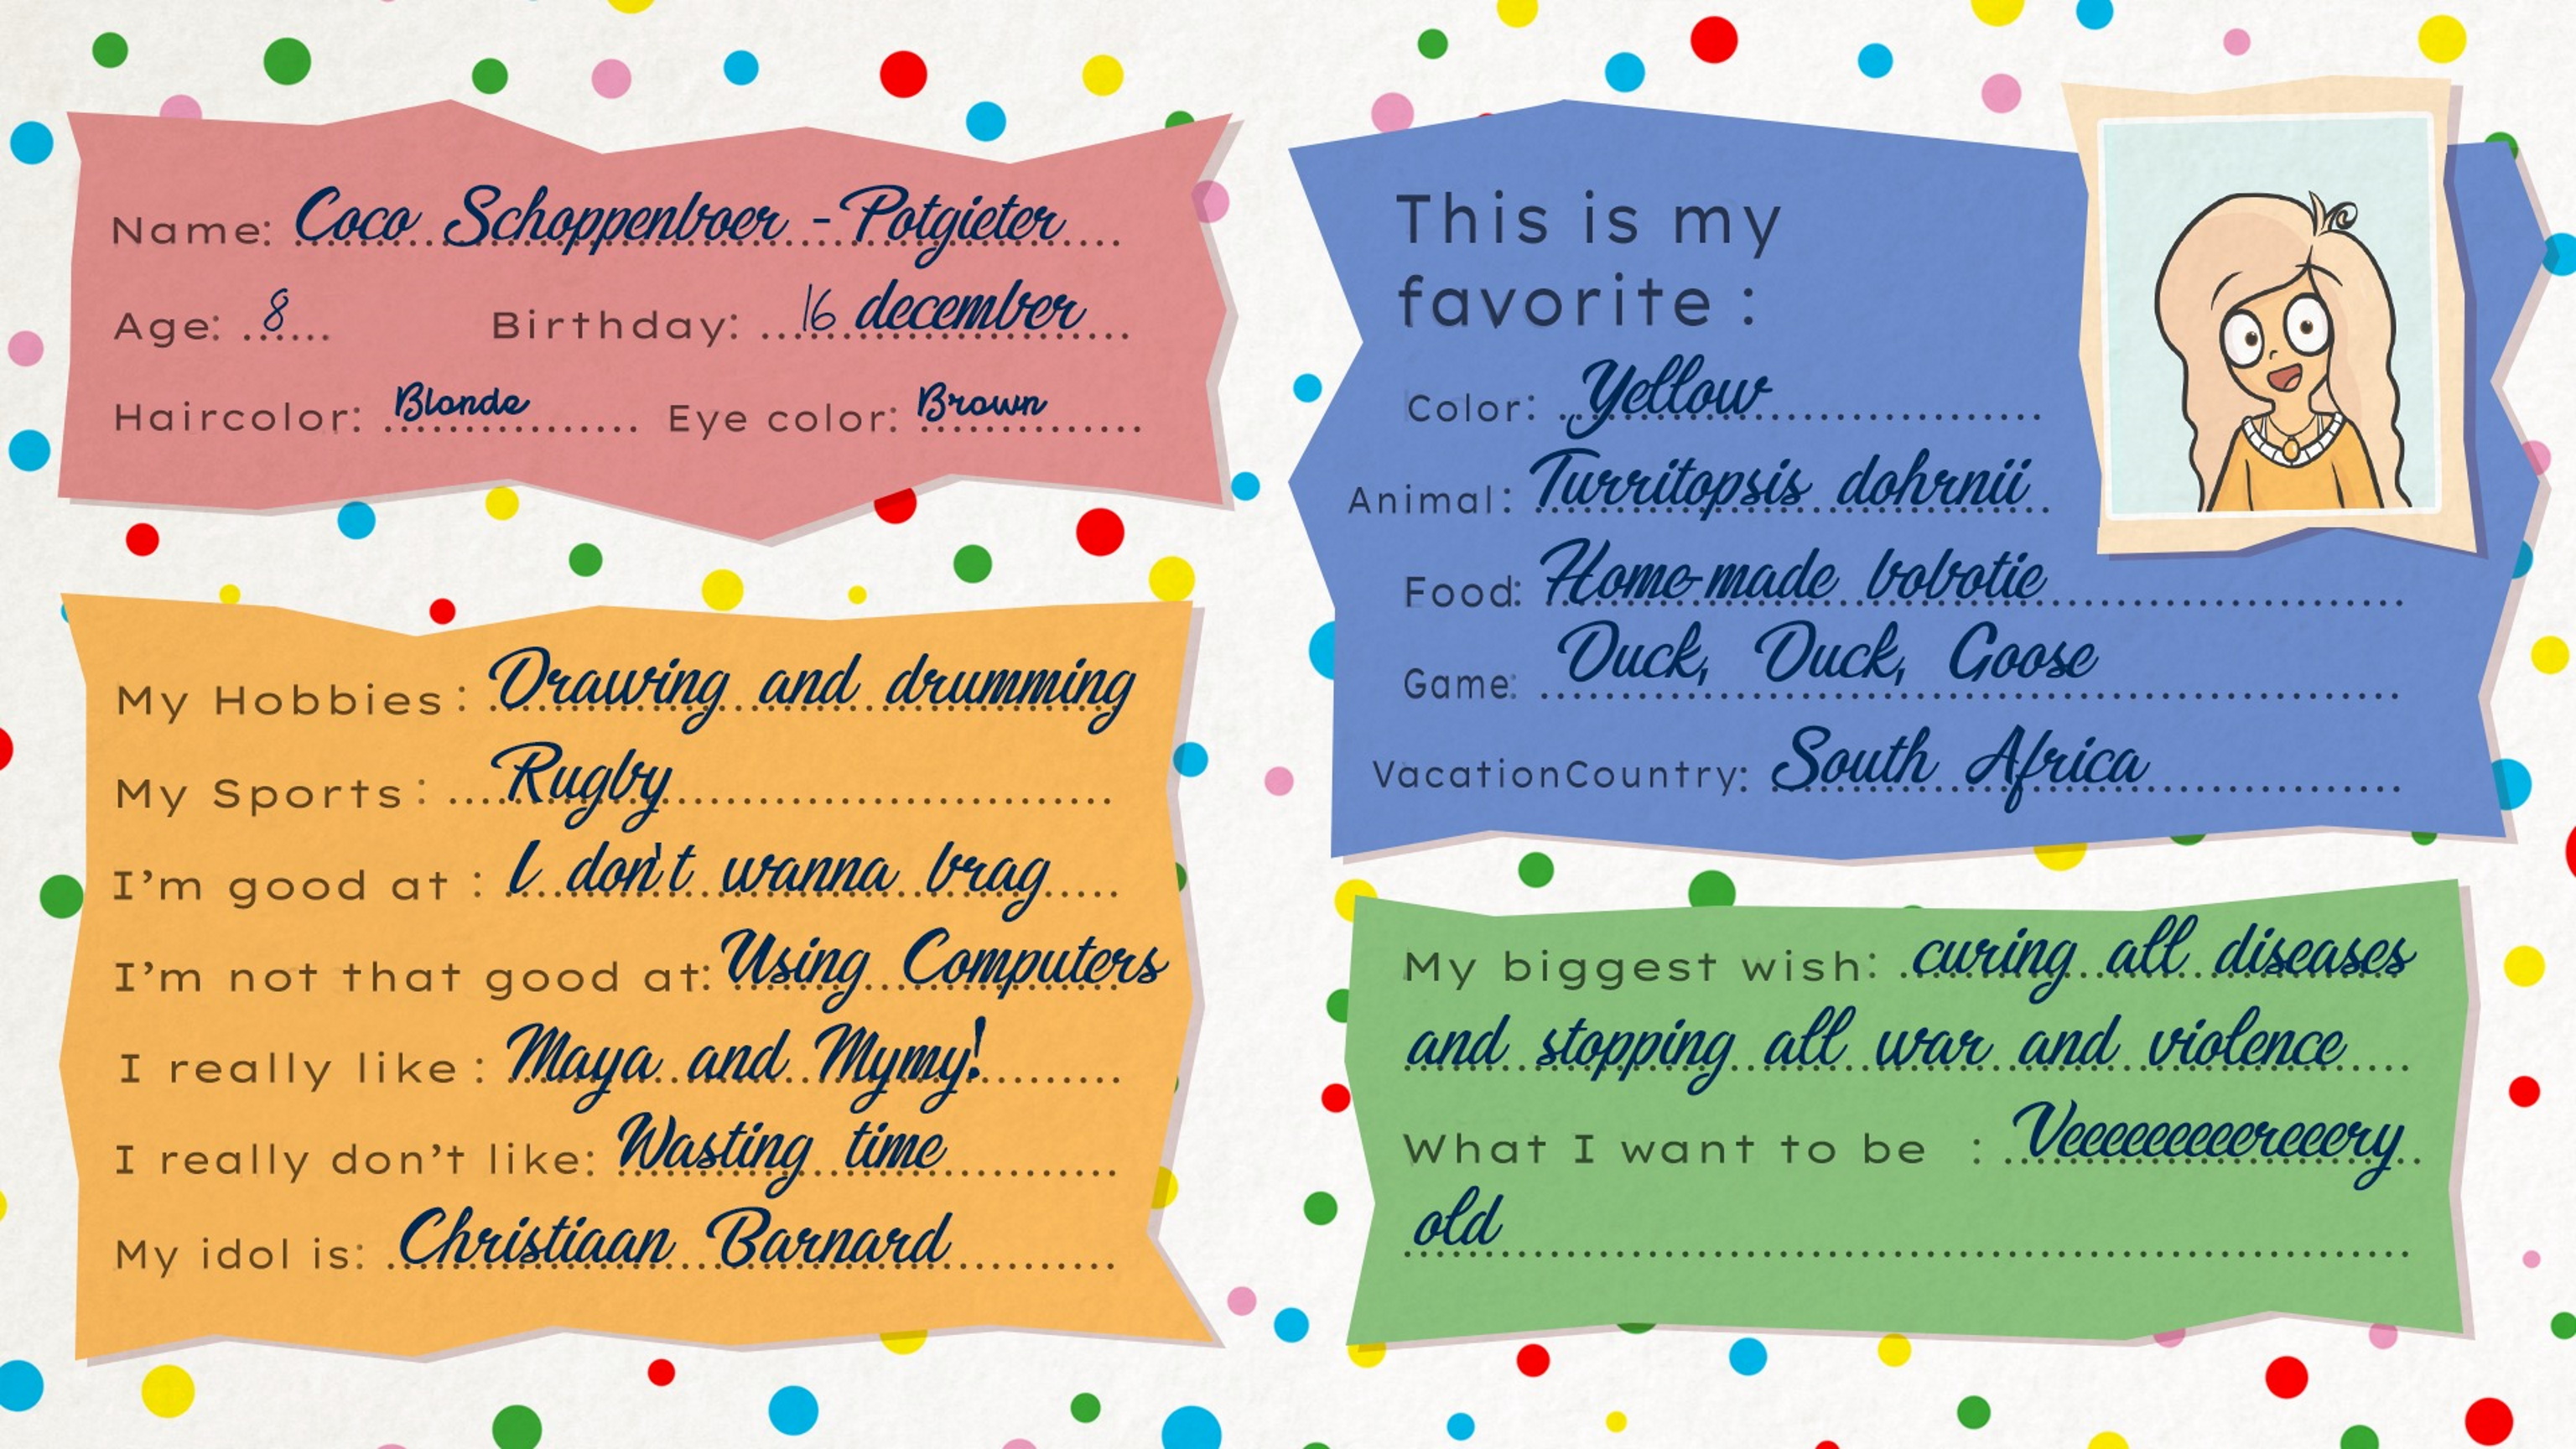 Name: Coco Schoppenboer - Potgieter
Age: 8 Birthday: 16 december
Haircolor: Blonde Eye color: Brown
My Hobbies: Drawing and drumming
My Sports: Rugby
I'm good at : I don't wanna brag
I'm not that good at: Using Computers
I really like : Maya and Mymy!
I really don't like: Wasting time
My idol is: Christiaan Barnard
This is my
favorite :
Color: Yellow
Animal: Turritopsis dohrnii
Food: Home-made bobotie
Game: Duck, Duck, Goose
VacationCountry: South Africa
My biggest wish: curing all diseases
and stopping all war and violence
What I want to be : Veeeeeeeeeereeery
old